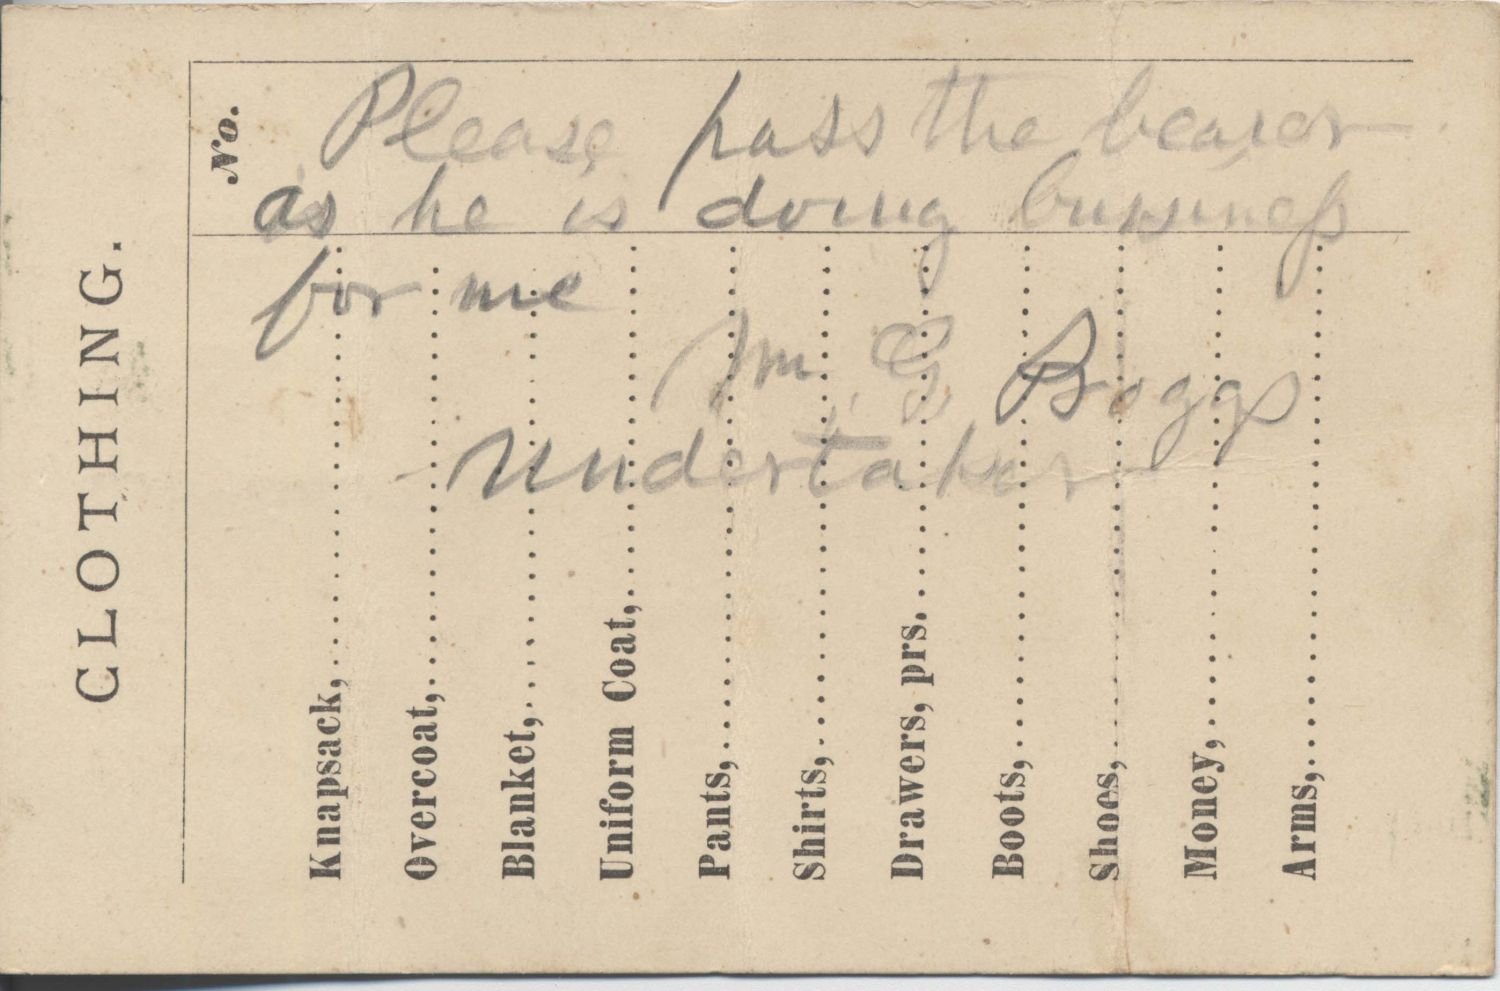 Please pass the bearer
as he is doing bussiness
for me
Wm G Boggs
Undertaker
CLOTHING.
No.
Knapsack,
Overcoat,
Blanket,
Uniform Coat,
Pants,
Shirts,
Drawers, prs.
Boots,
Shoes,
Money,
Arms,